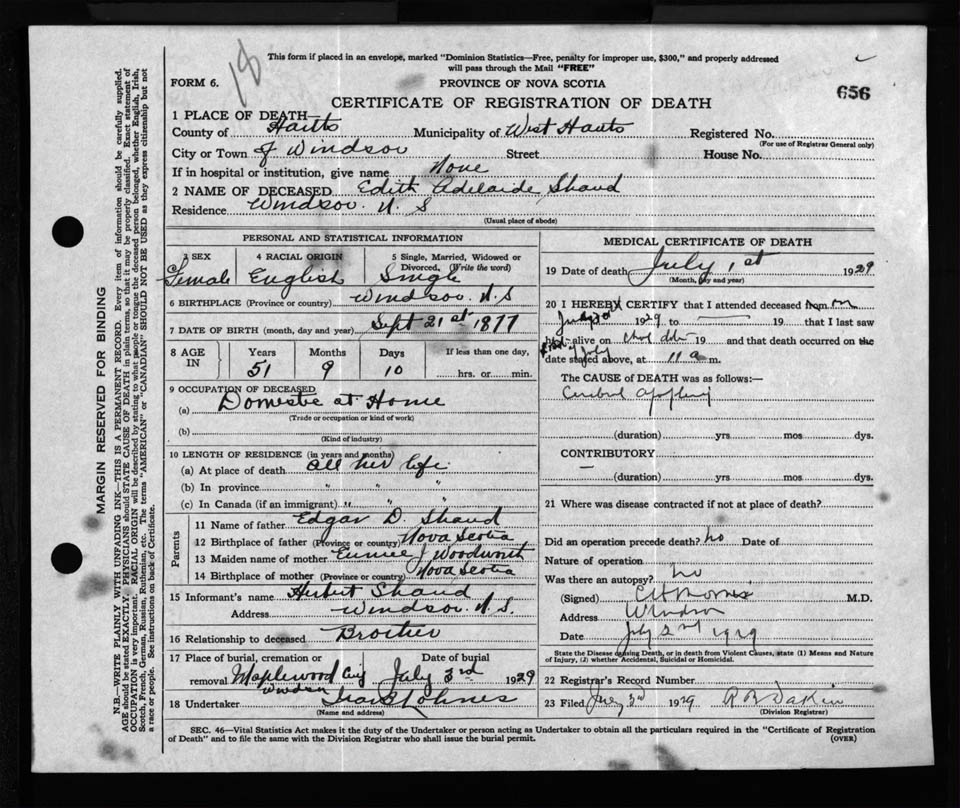 18
This form if placed in an envelope, marked "Dominion Statistics—Free, penalty for improper use, $300," and properly addressed
will pass through the Mail "FREE"
FORM 6.
PROVINCE OF NOVA SCOTIA
656
CERTIFICATE OF REGISTRATION OF DEATH
1 PLACE OF DEATH—
County of Hants Municipality of West Hants Registered No.
(For use of Registrar General only)
City or Town of Windsor Street House No.
If in hospital or institution, give name None
2 NAME OF DECEASED Edith Adelaide Shand
Residence Windsor. N. S
(Usual place of abode)
PERSONAL AND STATISTICAL INFORMATION
3 SEX 4 RACIAL ORIGIN 5 Single, Married, Widowed or Divorced. (Write the word)
Female English Single
6 BIRTHPLACE (Province or country) Windsor. N.S
7 DATE OF BIRTH (month, day and year) Sept 21st 1877
8 AGE IN Years Months Days If less than one day,
51 9 10 hrs. or min.
9 OCCUPATION OF DECEASED
(a) Domestic at Home
(Trade or occupation or kind of work)
(b)
(Kind of industry)
10 LENGTH OF RESIDENCE (in years and months)
(a) At place of death all her life
(b) In province " " "
(c) In Canada (if an immigrant) " " "
Parents
11 Name of father Edgar D. Shand
12 Birthplace of father (Province or country) Nova Scotia
13 Maiden name of mother Eunice J Woodworth
14 Birthplace of mother (Province or country) Nova Scotia
15 Informant's name Hubert Shand
Address Windsor. N. S.
16 Relationship to deceased Brother
17 Place of burial, cremation or removal Date of burial
Maplewood Windsor July 3rd 1929
18 Undertaker
(Name and address)
MEDICAL CERTIFICATE OF DEATH
19 Date of death July 1st 1929
(Month, day and year)
20 I HEREBY CERTIFY that I attended deceased from
1929 to 19 that I last saw
alive on 19 and that death occurred on the
date stated above, at 11 a m.
The CAUSE OF DEATH was as follows:—
Cerebral apoplexy
(duration) yrs mos dys.
CONTRIBUTORY
(duration) yrs mos dys.
21 Where was disease contracted if not at place of death?
Did an operation precede death? no Date of
Nature of operation
Was there an autopsy? no
(Signed) Morris M.D.
Address Windsor
Date July 2nd 1929
State the Disease causing Death, or in death from Violent Causes, state (1) Means and Nature
of Injury, (2) whether Accidental, Suicidal or Homicidal.
22 Registrar's Record Number
23 Filed July 3rd 1929 R B Dakin
(Division Registrar)
SEC. 46—Vital Statistics Act makes it the duty of the Undertaker or person acting as Undertaker to obtain all the particulars required in the "Certificate of Registration
of Death" and to file the same with the Division Registrar who shall issue the burial permit.
(OVER)
MARGIN RESERVED FOR BINDING
N.B.—WRITE PLAINLY WITH UNFADING INK—THIS IS A PERMANENT RECORD. Every item of information should be carefully supplied.
AGE should be stated EXACTLY. PHYSICIANS should STATE CAUSE OF DEATH in plain terms, so that it may be properly classified. Exact statement of
OCCUPATION is very important. RACIAL ORIGIN will be described by stating to what people or tongue the deceased person belonged, whether English, Irish,
Scotch, French, German, Russian, Ruthenian, etc. The terms "AMERICAN" or "CANADIAN" SHOULD NOT BE USED as they express citizenship but not
a race or people. See instructions on back of Certificate.